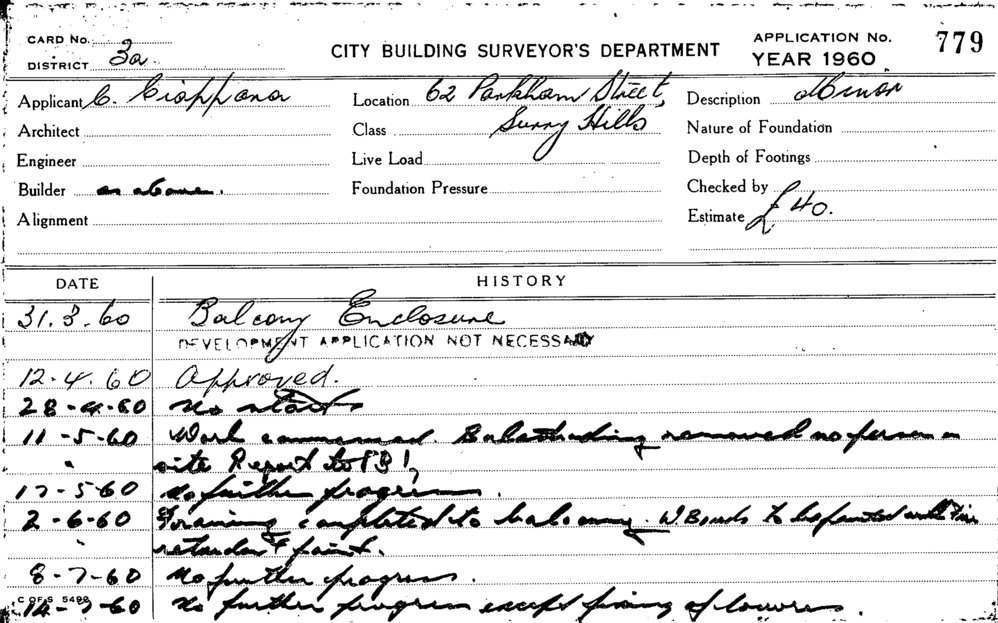 CARD No.
DISTRICT 3a
CITY BUILDING SURVEYOR'S DEPARTMENT
APPLICATION No. 779
YEAR 1960
Applicant C. Ciappara
Location 62 Parkham Street,
Surry Hills
Description Minor
Architect
Class
Nature of Foundation
Engineer
Live Load
Depth of Footings
Builder as above.
Foundation Pressure
Checked by
Alignment
Estimate £40.
DATE HISTORY
31.3.60 Balcony Enclosure
DEVELOPMENT APPLICATION NOT NECESSARY
12.4.60 Approved.
28-4-60 No start
11-5-60 Work commenced. Balustrading removed no person on
" site Report to B I,
17-5-60 No further progress.
2-6-60 Framing completed to balcony. W Boards to be painted with Fire
" retardant paint.
8-7-60 No further progress.
C OF S 5498
14-7-60 No further progress except fixing of louvres.